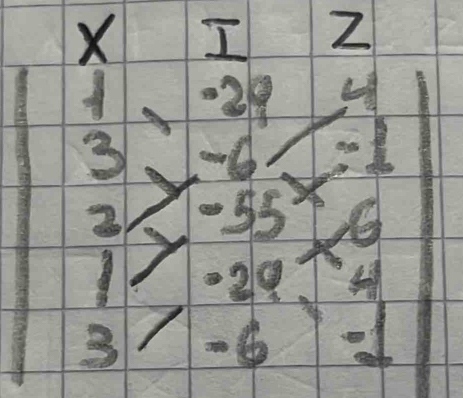 X I Z
1 -29 4
3 -6 -1
2 -55 6
1 -29 4
3 -6 -1